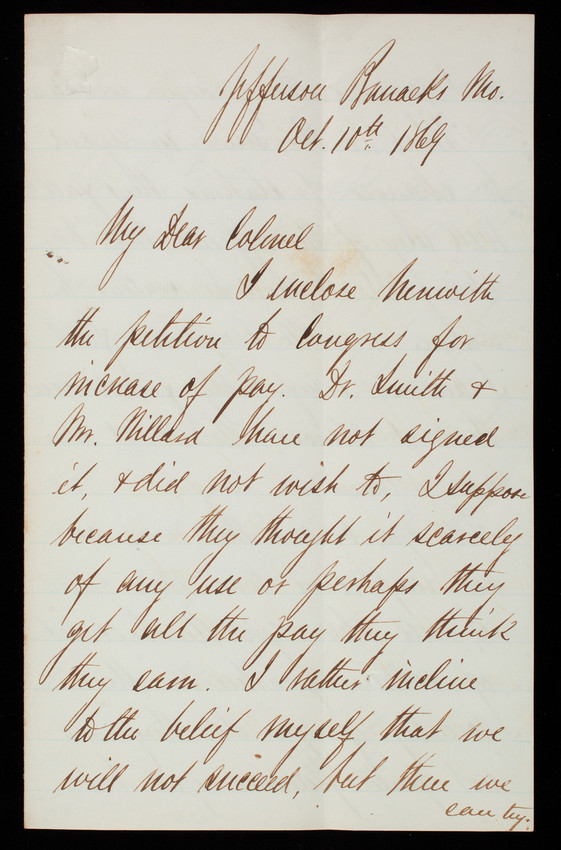 Jefferson Barracks Mo.
Oct. 10th 1869
My Dear Colonel
I inclose herewith
the petition to Congress for
increase of pay. Dr. Smith &
Mr. Willard have not signed
it, & did not wish to, I suppose
because they thought it scarcely
of any use or perhaps they
get all the pay they think
they earn. I rather incline
to the belief myself that we
will not succeed, but then we
can try.